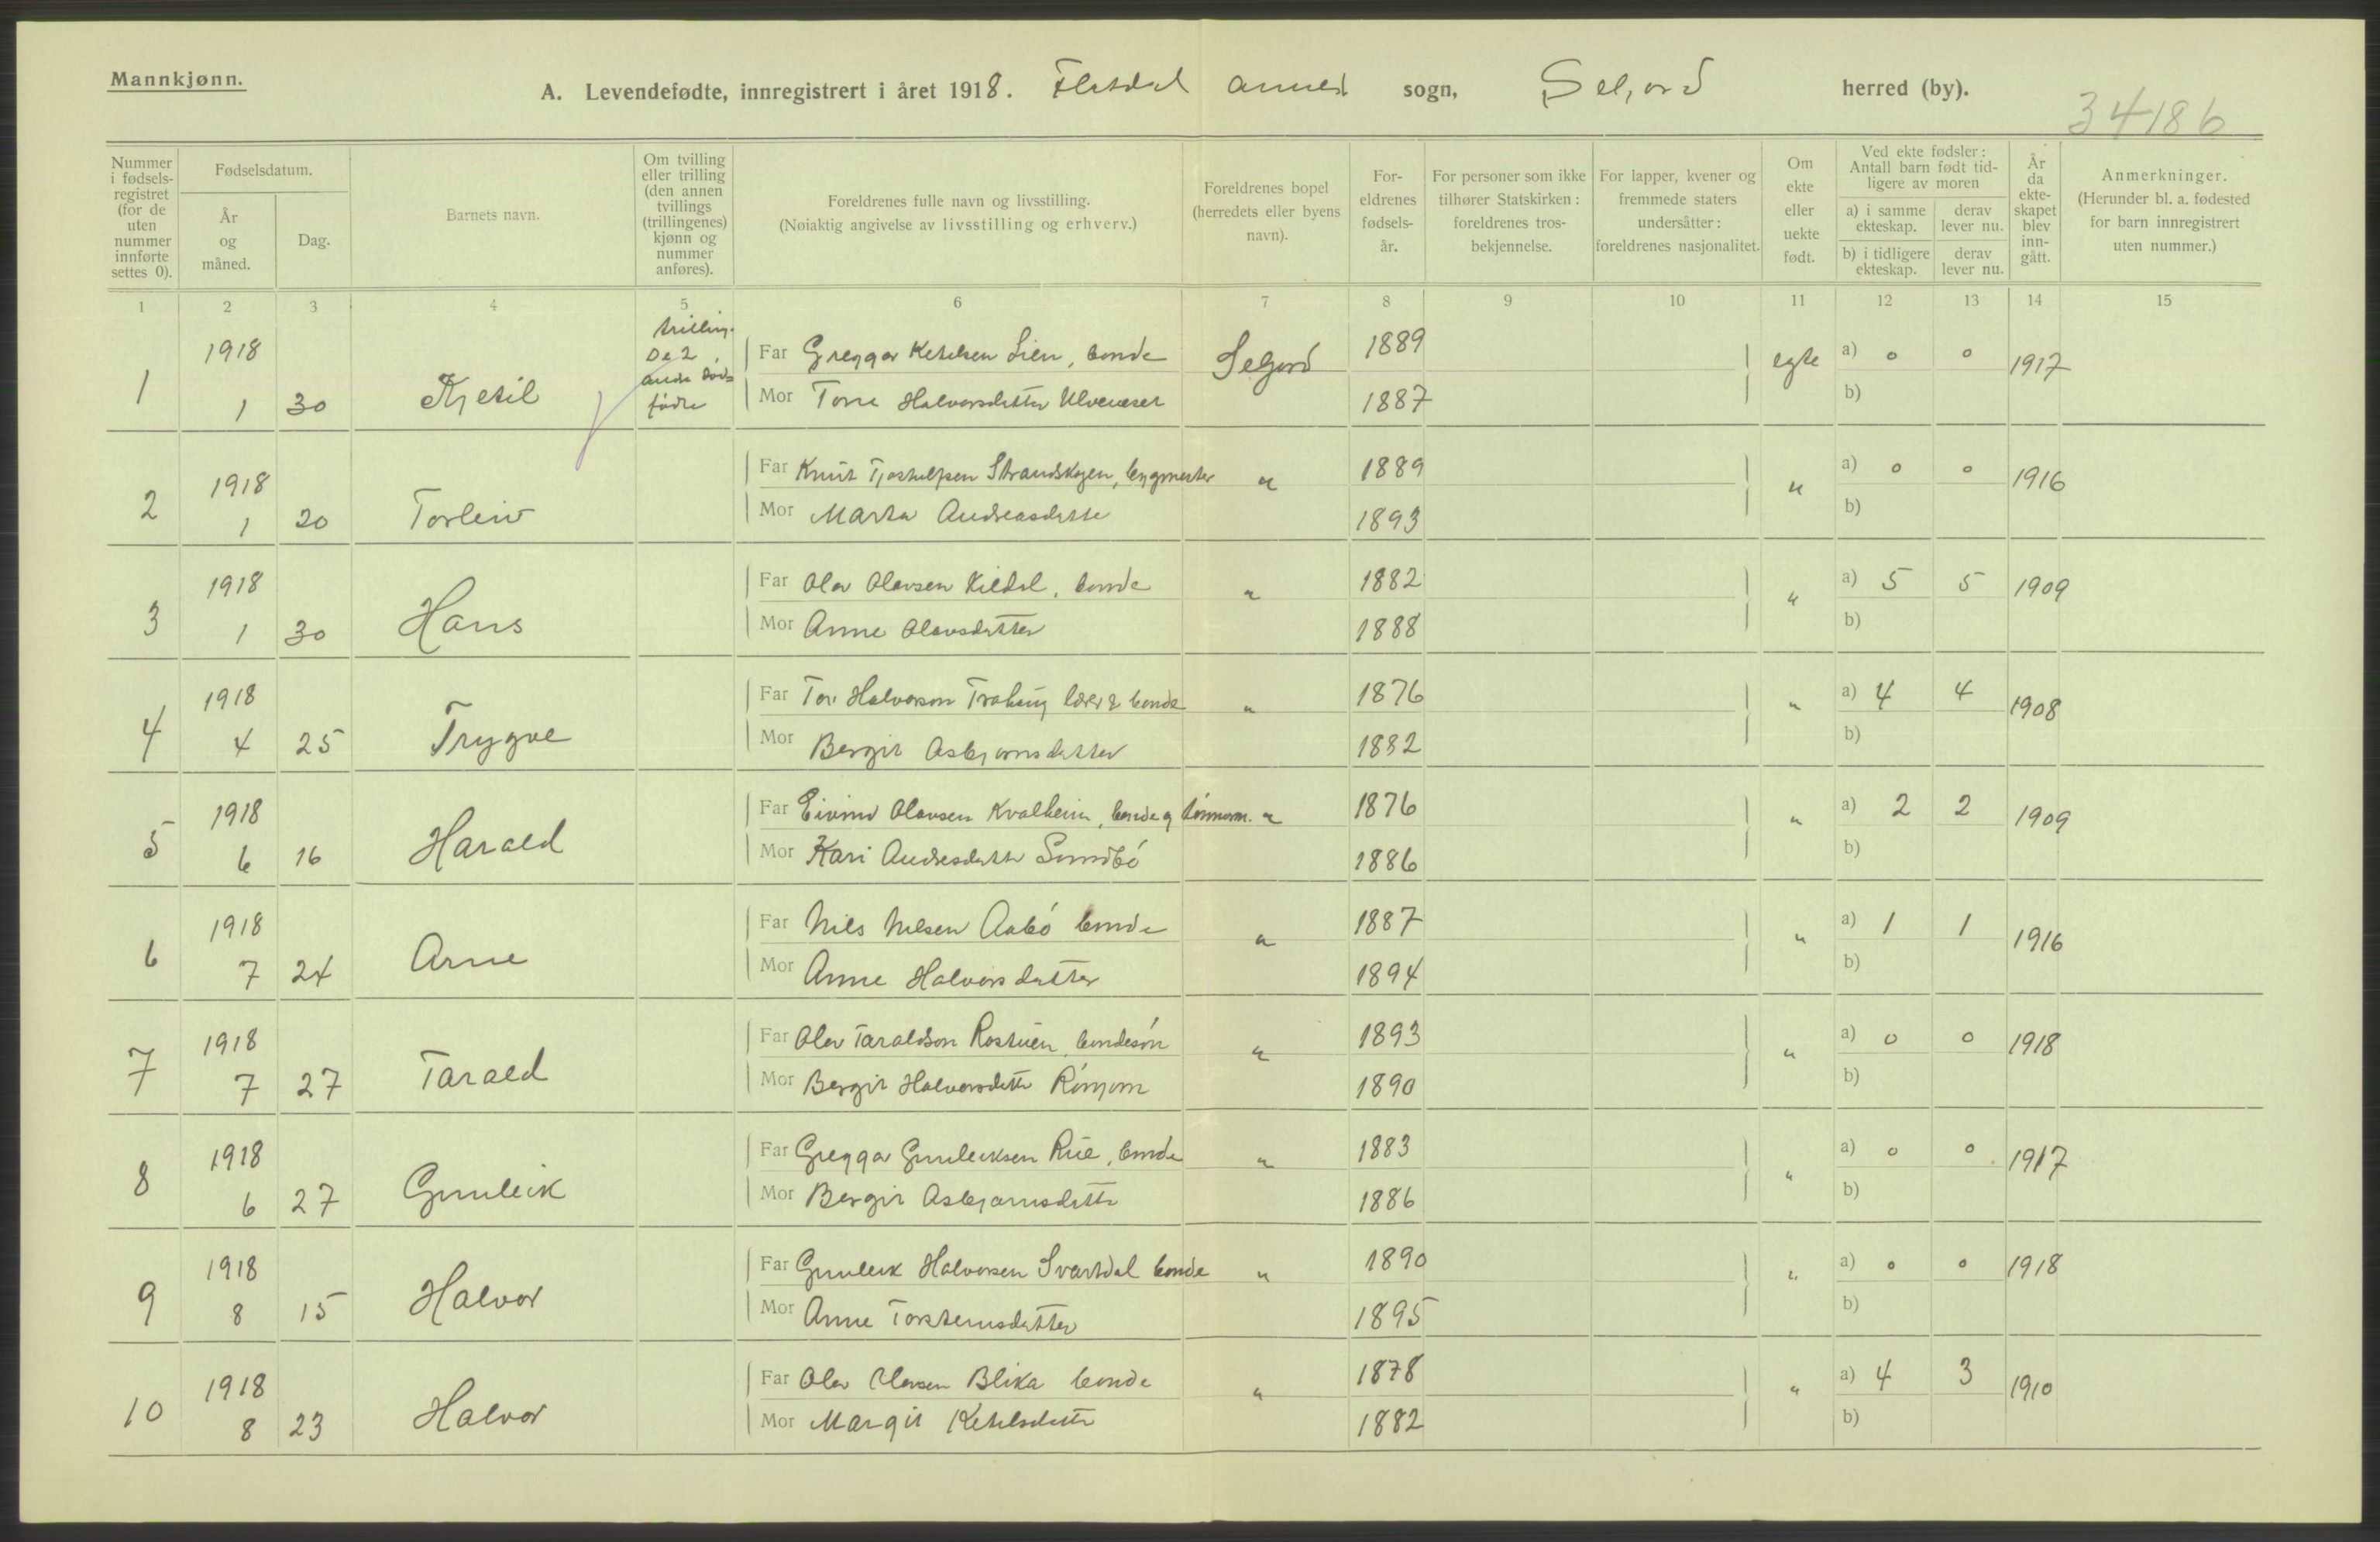 Mannkjønn.
A. Levendefødte, innregistrert i året 1918. Flatdal annex sogn, Seljord herred (by).
34186
Nummer i fødselsregistret (for de uten nummer innførte settes 0).
Fødselsdatum.
År og måned.
Dag.
Barnets navn.
Om tvilling eller trilling (den annen tvillings (trillingenes) kjønn og nummer anføres).
Foreldrenes fulle navn og livsstilling.
(Nøiaktig angivelse av livsstilling og erhverv.)
Foreldrenes bopel (herredets eller byens navn).
Foreldrenes fødselsår.
For personer som ikke tilhører Statskirken: foreldrenes trosbekjennelse.
For lapper, kvener og fremmede staters undersåtter: foreldrenes nasjonalitet.
Om ekte eller uekte født.
Ved ekte fødsler: Antall barn født tidligere av moren
a) i samme ekteskap. derav lever nu.
b) i tidligere ekteskap. derav lever nu.
År da ekteskapet blev inngått.
Anmerkninger.
(Herunder bl. a. fødested for barn innregistrert uten nummer.)
1 2 3 4 5 6 7 8 9 10 11 12 13 14 15
1 1918 1 30 Kjetil trilling. De 2 andre dødfødte
Far Greggar Ketilsen Lien, bonde Seljord 1889 egte a) 0 0 1917
Mor Tone Halvorsdatter 1887 b)
2 1918 1 20 Torleiv
Far Knut Tjostulfsen Strandskogen, bygmester " 1889 " a) 0 0 1916
Mor Marta Andreasdatter 1893 b)
3 1918 1 30 Hans
Far Olav Olavsen Kildal, bonde " 1882 " a) 5 5 1909
Mor Anne Olavsdatter 1888 b)
4 1918 4 25 Trygve
Far Tov Halvorson lærer & bonde " 1876 " a) 4 4 1908
Mor Bergit Asbjørnsdatter 1882 b)
5 1918 6 16 Harald
Far Eivind Olavsen Kvalheim, bonde og " 1876 " a) 2 2 1909
Mor Kari Andresdatter Sundbö 1886 b)
6 1918 7 24 Arne
Far Nils Nilsen Aabö bonde " 1887 " a) 1 1 1916
Mor Anne Halvorsdatter 1894 b)
7 1918 7 27 Tarald
Far Olav Taraldson Rostuen, bondesön " 1893 " a) 0 0 1918
Mor Bergit Halvorsdatter 1890 b)
8 1918 6 27 Gunleik
Far Greggar Gunleiksen Rue, bonde " 1883 " a) 0 0 1917
Mor Bergit Asbjørnsdatter 1886 b)
9 1918 8 15 Halvor
Far Gunleik Halvorsen Svartdal bonde " 1890 " a) 0 0 1918
Mor Anne Torsteinsdatter 1895 b)
10 1918 8 23 Halvor
Far Olav Olavsen Blika bonde " 1878 " a) 4 3 1910
Mor Margit Ketilsdatter 1882 b)